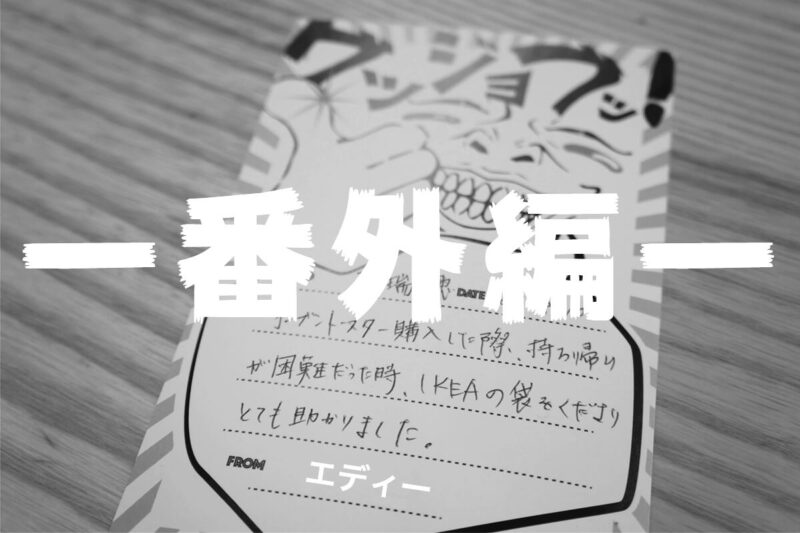 グッジョブッ!
ー番外編ー
DATE
オーブントースター購入した際、持ち帰り
が困難だった時、IKEAの袋をくださり
とても助かりました。
FROM エディー